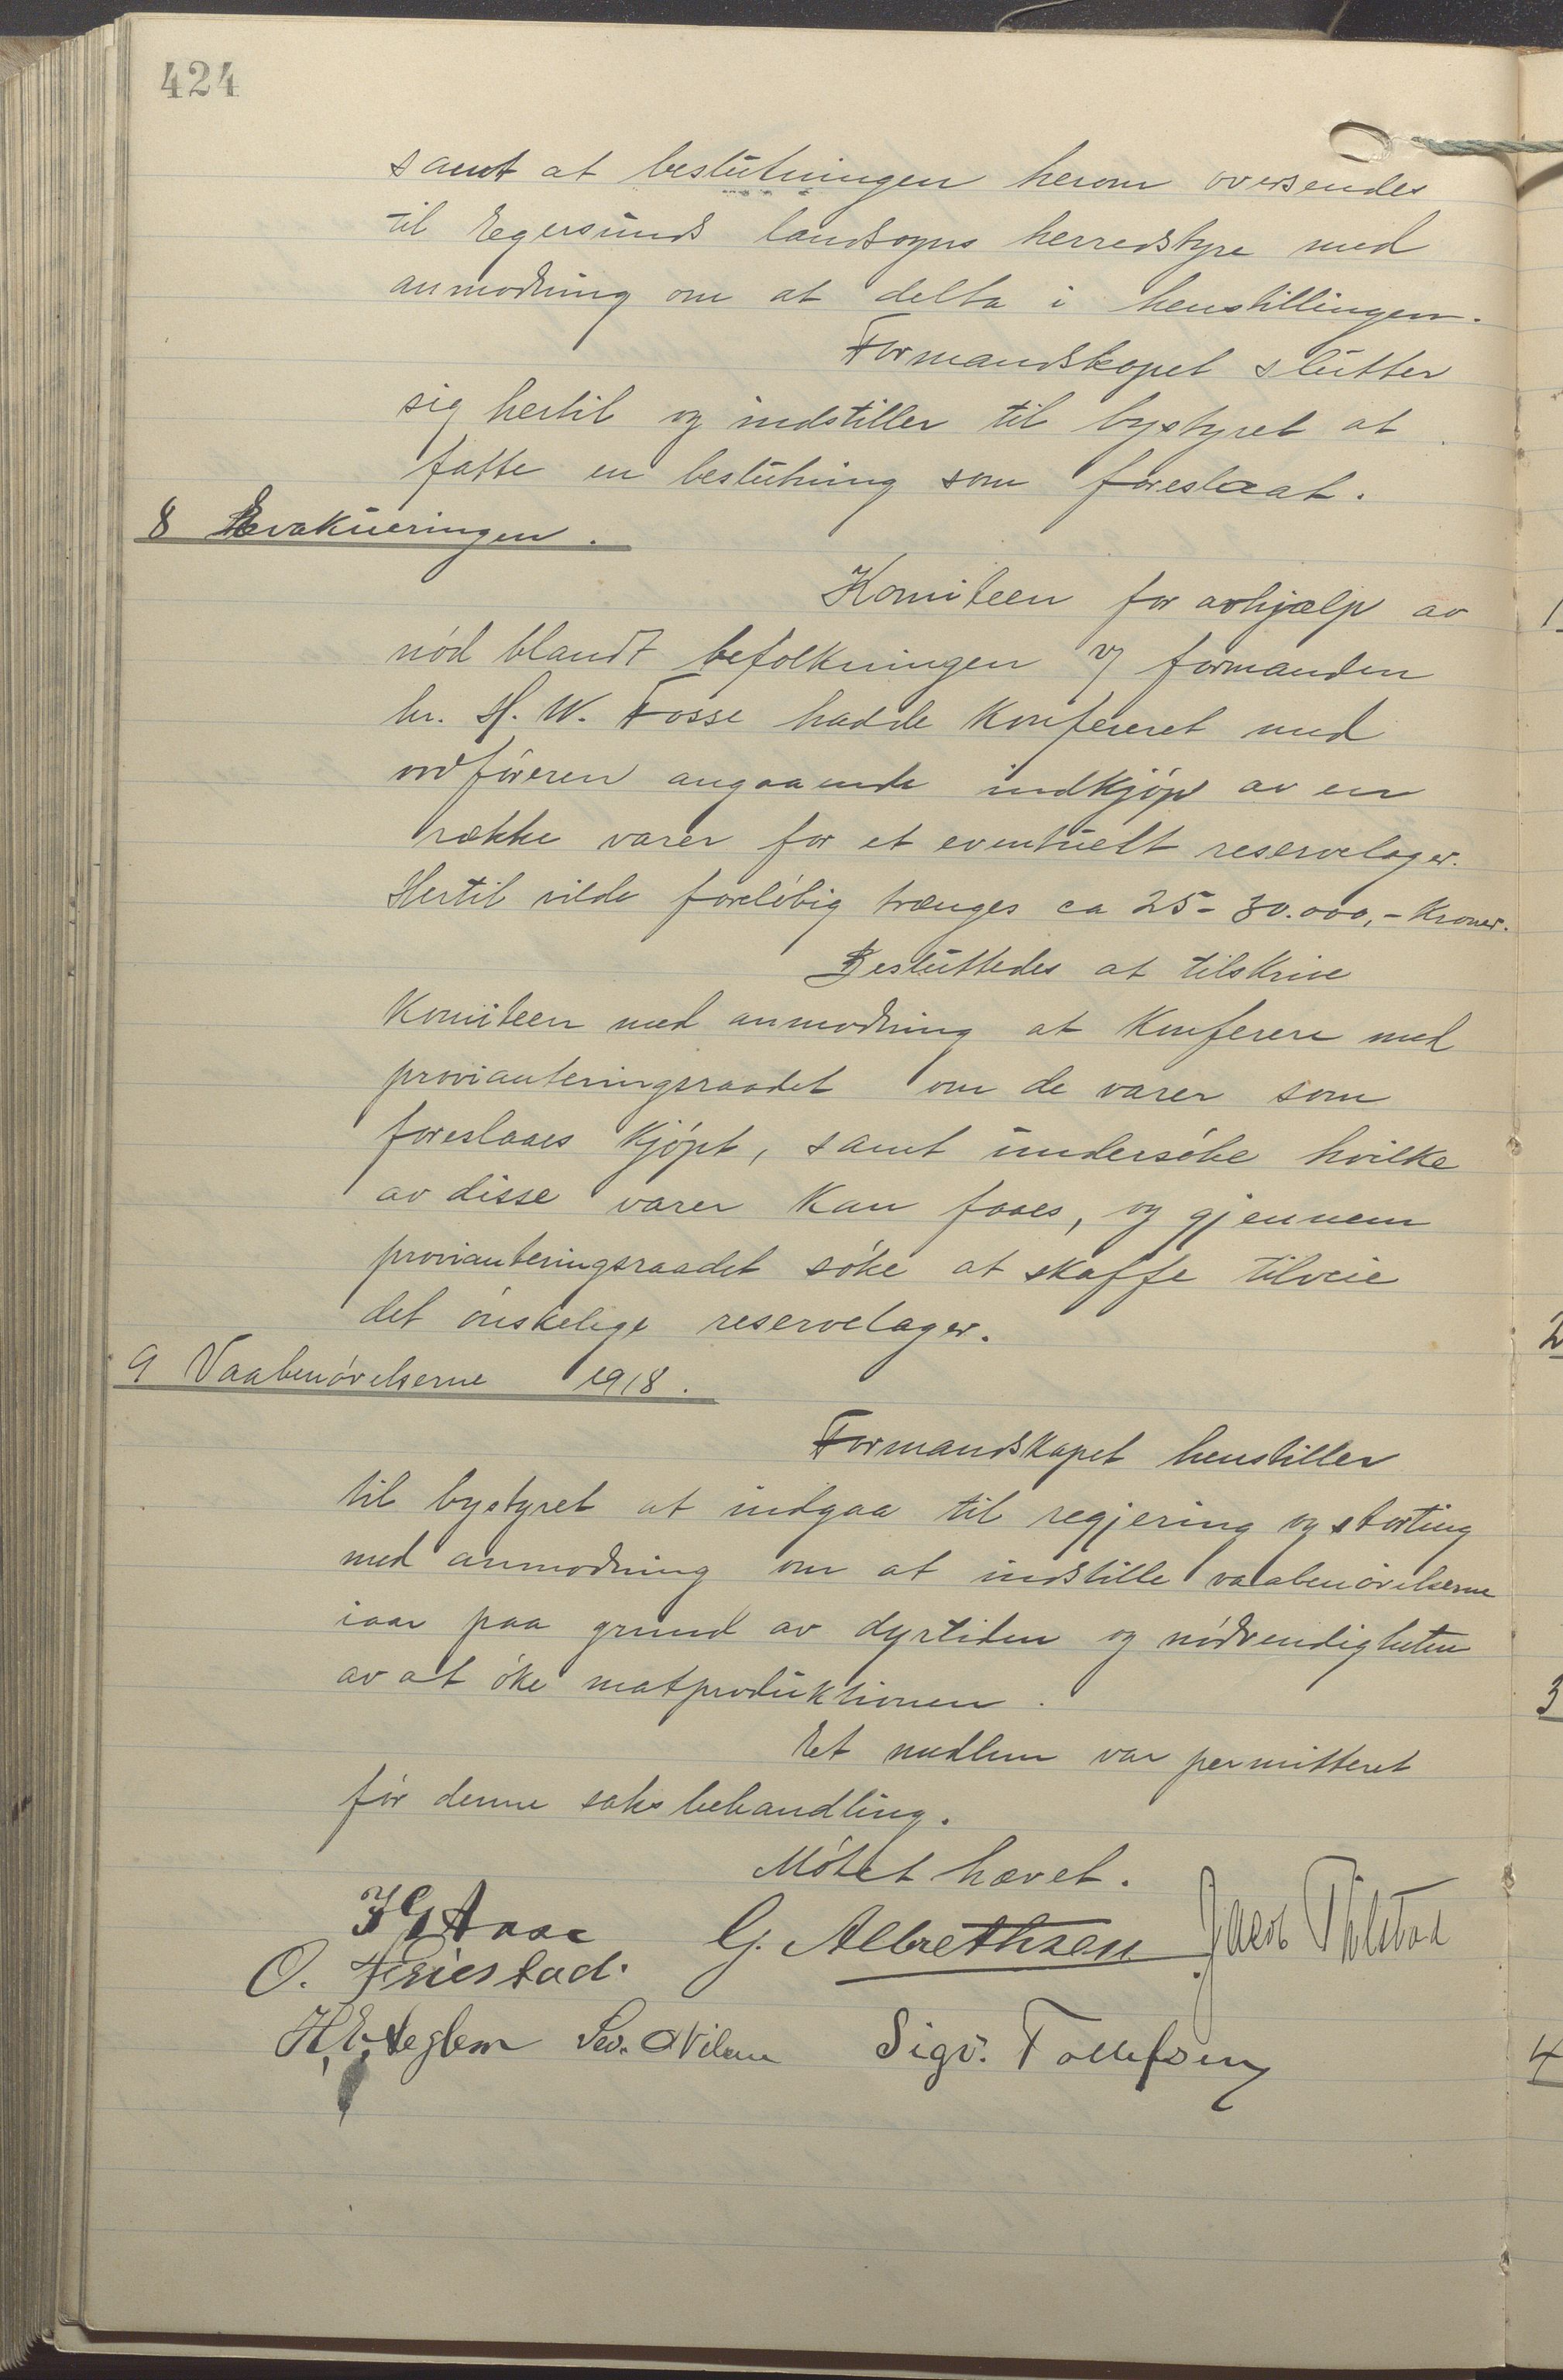 424
samt at beslutningen herom oversendes
til Egersunds landsogns herredstyre med
anmodning om at delta i henstillingen.
Formandskapet slutter
sig hertil og indstiller til bystyret at
fatte en beslutning som foreslaat.
8 Evakueringen.
Komiteen for avhjælp av
nød blandt befolkningen v/ formanden
hr. H. W. Fosse hadde konfereret med
ordføreren angaaende indkjøp av en
række varer for et eventuelt reservelager.
Hertil vilde foreløbig trænges ca 25-30.000,- kroner.
Besluttedes at tilskrive
komiteen med anmodning at konferere med
provianteringsraadet om de varer som
foreslaaes kjøpt, samt undersøke hvilke
av disse varer kan faaes, og gjennem
provianteringsraadet søke at skaffe tilveie
det ønskelige reservelager.
9 Vaabenøvelserne 1918.
Formandskapet henstiller
til bystyret at indgaa til regjering og storting
med anmodning om at indstille vaabenøvelserne
iaar paa grund av dyrtiden og nødvendigheten
av at øke matproduktionen.
Et medlem var permitteret
før denne saks behandling.
Møtet hævet.
G. Albrethsen Jacob
O. Friestad.
Sigv. Tollefsen
1
2
3
4